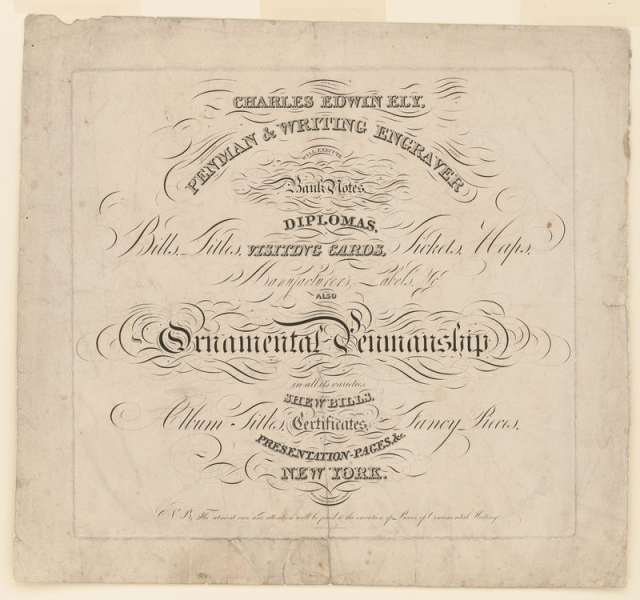 CHARLES EDWIN ELY,
PENMAN & WRITING ENGRAVER
WILL EXECUTE
Bank Notes,
DIPLOMAS,
Bills, Titles, VISITING CARDS, Tickets, Maps,
Manufacturers, Labels, &c.
ALSO
Ornamental Penmanship
in all its varieties
SHEW BILLS,
Album Titles, Certificates, Fancy Pieces,
PRESENTATION-PAGES, &c.
NEW YORK.
N.B. The utmost care and attention will be paid to the execution of Pieces of Ornamental Writing